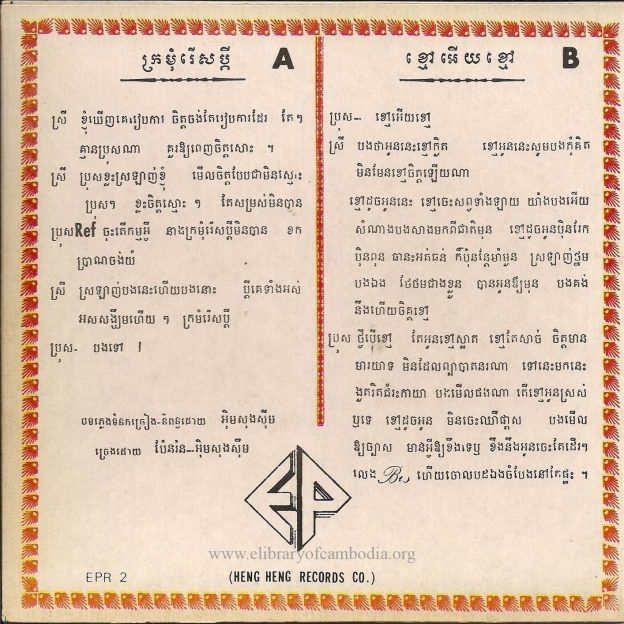 ក្រមុំរើសប្តី A
ស្រី ខ្ញុំឃើញគេរៀបការ ចិត្តចង់តែរៀបការដែរ តែៗ
គ្មានប្រុសណា គួរឱ្យពេញចិត្តសោះ ។
ស្រី ប្រុសខ្លះស្រឡាញ់ខ្ញុំ មើលចិត្តបែបជាមិនស្មោះ
ប្រុសៗ ខ្លះចិត្តស្មោះ ។ តែសម្រស់មិនបាន
ប្រុស Ref ចុះតើកម្មអ្វី នាងក្រមុំរើសប្តីមិនបាន ខក
ប្រាណចង់យំ
ស្រី ស្រឡាញ់បងនេះហើយបងនោះ ប្តីគេទាំងអស់
អស់សង្ឃឹមហើយ ។ ក្រមុំរើសប្តី
ប្រុស- បងទៅ !
បទភ្លេងទំនុកច្រៀង-និពន្ធដោយ អ៊ិមសុងស៊ឺម
ច្រៀងដោយ ប៉ែនរ៉ន-អ៊ិមសុងស៊ឺម
ខ្មៅអើយខ្មៅ B
ប្រុស- ខ្មៅអើយខ្មៅ
ស្រី បងថាអូននេះខ្មៅក្អិត ខ្មៅអូននេះសូមបងកុំគិត
មិនមែនខ្មៅចិត្តឡើយណា
ខ្មៅដូចអូននេះ ខ្មៅចេះសព្វទាំងឡាយ យ៉ាងបងអើយ
សំណាងបងសាងមកពីជាតិមុន ខ្មៅដូចអូនប៉ិនរែក
ប៉ិនពុន ធានៈអត់ធន់ ក៏ប៉ុន្តែមាំមួន ស្រឡាញ់ផ្ទុម
បងឯង ថែថមជាងខ្លួន បានអូនឱ្យមុន បងគង់
នឹងហើយចិត្តខ្មៅ
ប្រុស ថ្វីបើខ្មៅ តែអូនខ្មៅស្អាត ខ្មៅតែសាច់ ចិត្តមាន
មារយាទ មិនដែលព្យាបាតនរណា ទៅនេះមកនេះ
ងួតរិតជំរះកាយា បងមើលផងណា តើខ្មៅអូនស្រស់
ឬទេ ខ្មៅដូចអូន មិនចេះឈឺផ្តាស បងមើល
ឱ្យច្បាស់ មានអ្វីឱ្យខឹងទេឬ ខឹងនឹងអូនចេះតែដើរៗ
លេង Bes ហើយចោលបដឯងចំបែងនៅតែផ្ទះ ។
EP
www.elibraryofcambodia.org
EPR 2
(HENG HENG RECORDS CO.)